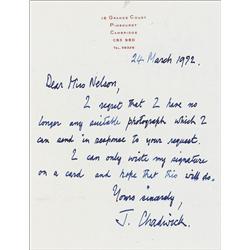 18 GRANGE COURT
PINEHURST
CAMBRIDGE
CB3 9BD
24 March 1972.
Dear Miss Nelson,
I regret that I have no
longer any suitable photograph which I
can send in response to your request.
I can only write my signature
on a card and hope that this will do.
Yours sincerely,
J. Chadwick.